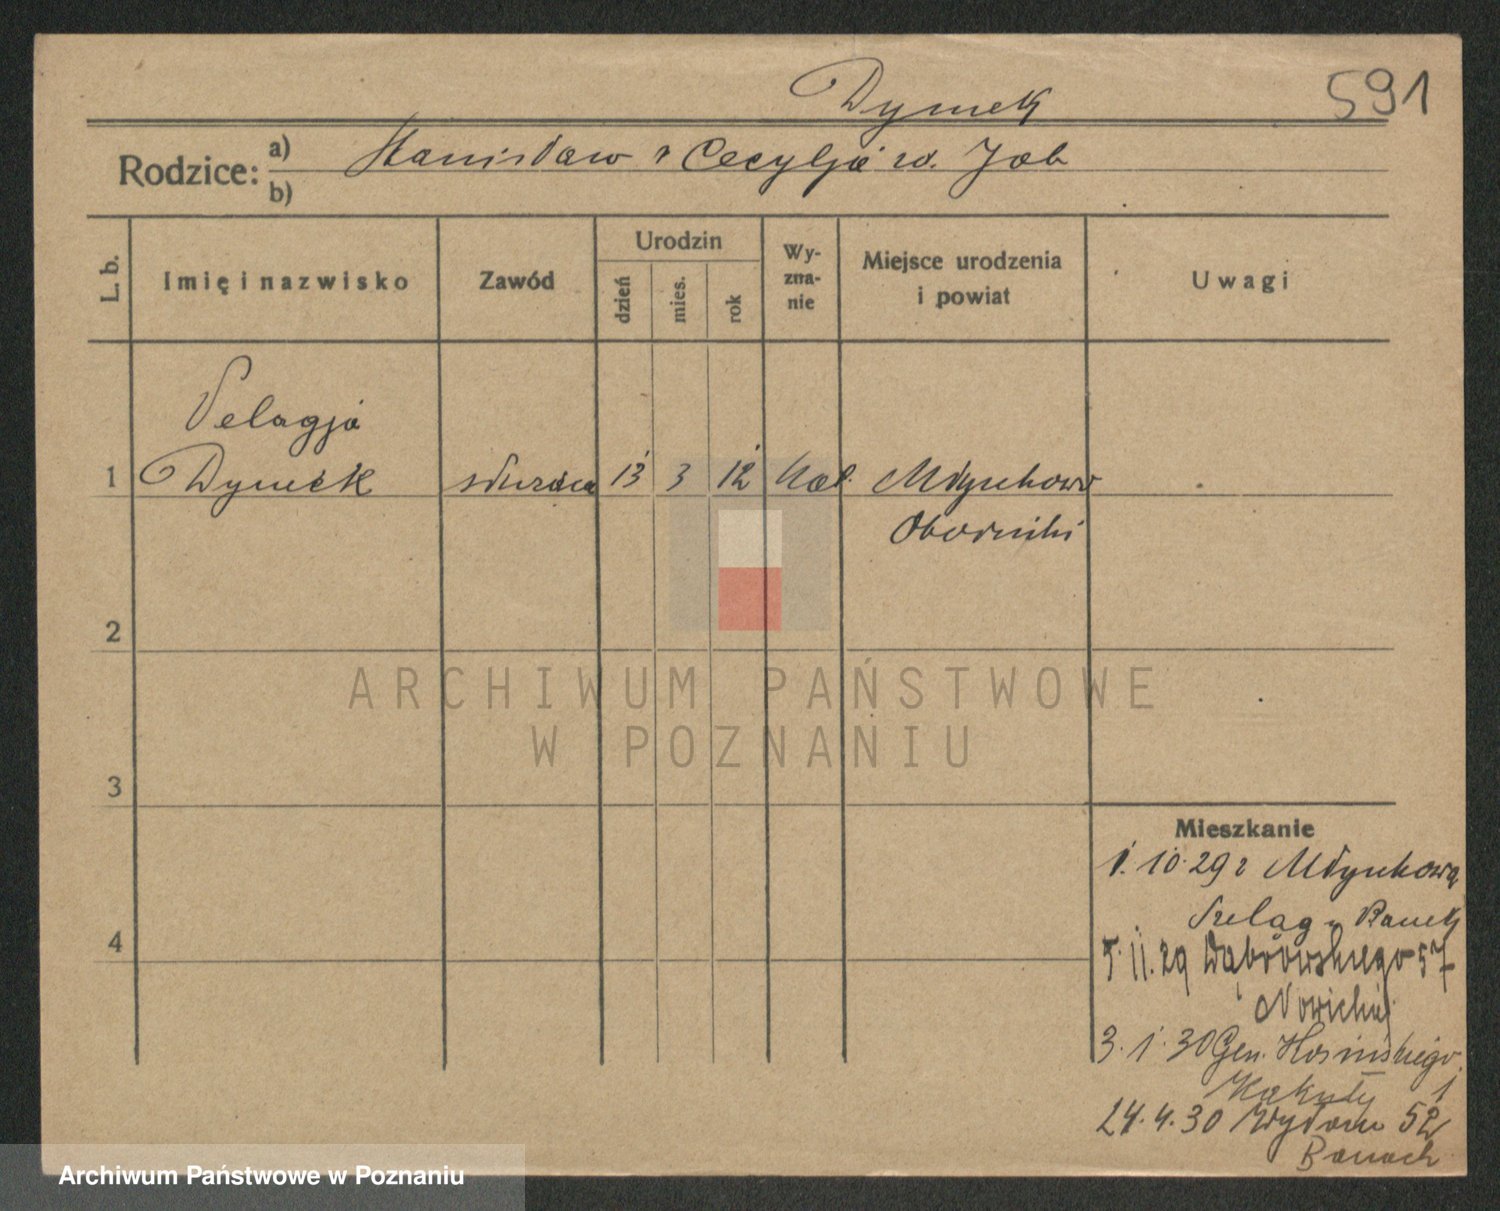 Dymek 591
Rodzice: a) Stanisław i Cecylja zd. Job
b)
L. b. Imię i nazwisko Zawód Urodzin dzień mies. rok Wy-zna-nie Miejsce urodzenia i powiat Uwagi
Pelagja
1 Dymek służąca 13 3 12 kat. Młynkowo
Oborniki
2
ARCHIWUM PAŃSTWOWE
W POZNANIU
3
Mieszkanie
1.10.29 z Młynkowa
Szeląg Banek
4
5.11.29 Dąbrowskiego 57
Nowicki
3.1.30 Gen. Kosińskiego
1
24.4.30 52
Banach
Archiwum Państwowe w Poznaniu